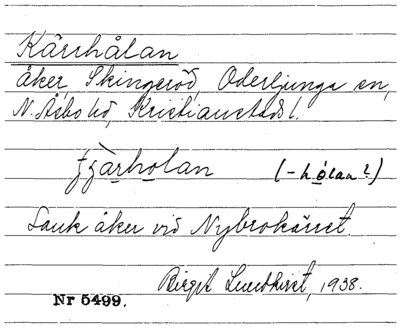 Kärrhålan
åker, Skingeröd, Oderljunga sn,
N. Åsbo hd, Kristianstads l.
(-hólan?)
Sank åker vid Nybrokärret.
Birgit Lundkvist, 1938.
Nr 5499.